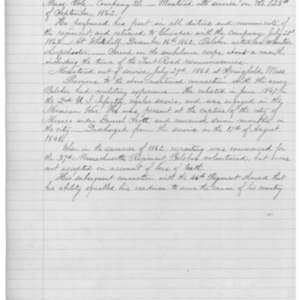 Mass. Vols. Company D. - Mustered into service on the 22d
of September 1862.
He performed his part in all duties and movements of
the regiment, and returned to Chicopee with the Company July 21st
1863. At Whitehall, December 16th 1862, Belcher acted as volunteer
sharpshooter. Served in the ambulance corps about a month,
including the time of the Trent Road reconnoissance.
Mustered out of service, July 29th 1863, at Springfield, Mass.
Previous to the late civil war connection with the army
Belcher had military experience. He enlisted in June 1847 in
the 2nd U.S. Infantry regular service, and was engaged in the
Mexican War. Was present at the capture of the city of
Mexico under General Scott, and remained seven months in
the city. Discharged from the service on the 1st of August
1848.
When in the summer of 1862, recruiting was commenced for
the 37th Massachusetts Regiment, Belcher volunteered, but was
not accepted on account of loss of teeth.
His subsequent connection with the 46th Regiment showed that
his ability equalled his readiness to serve the cause of his country.